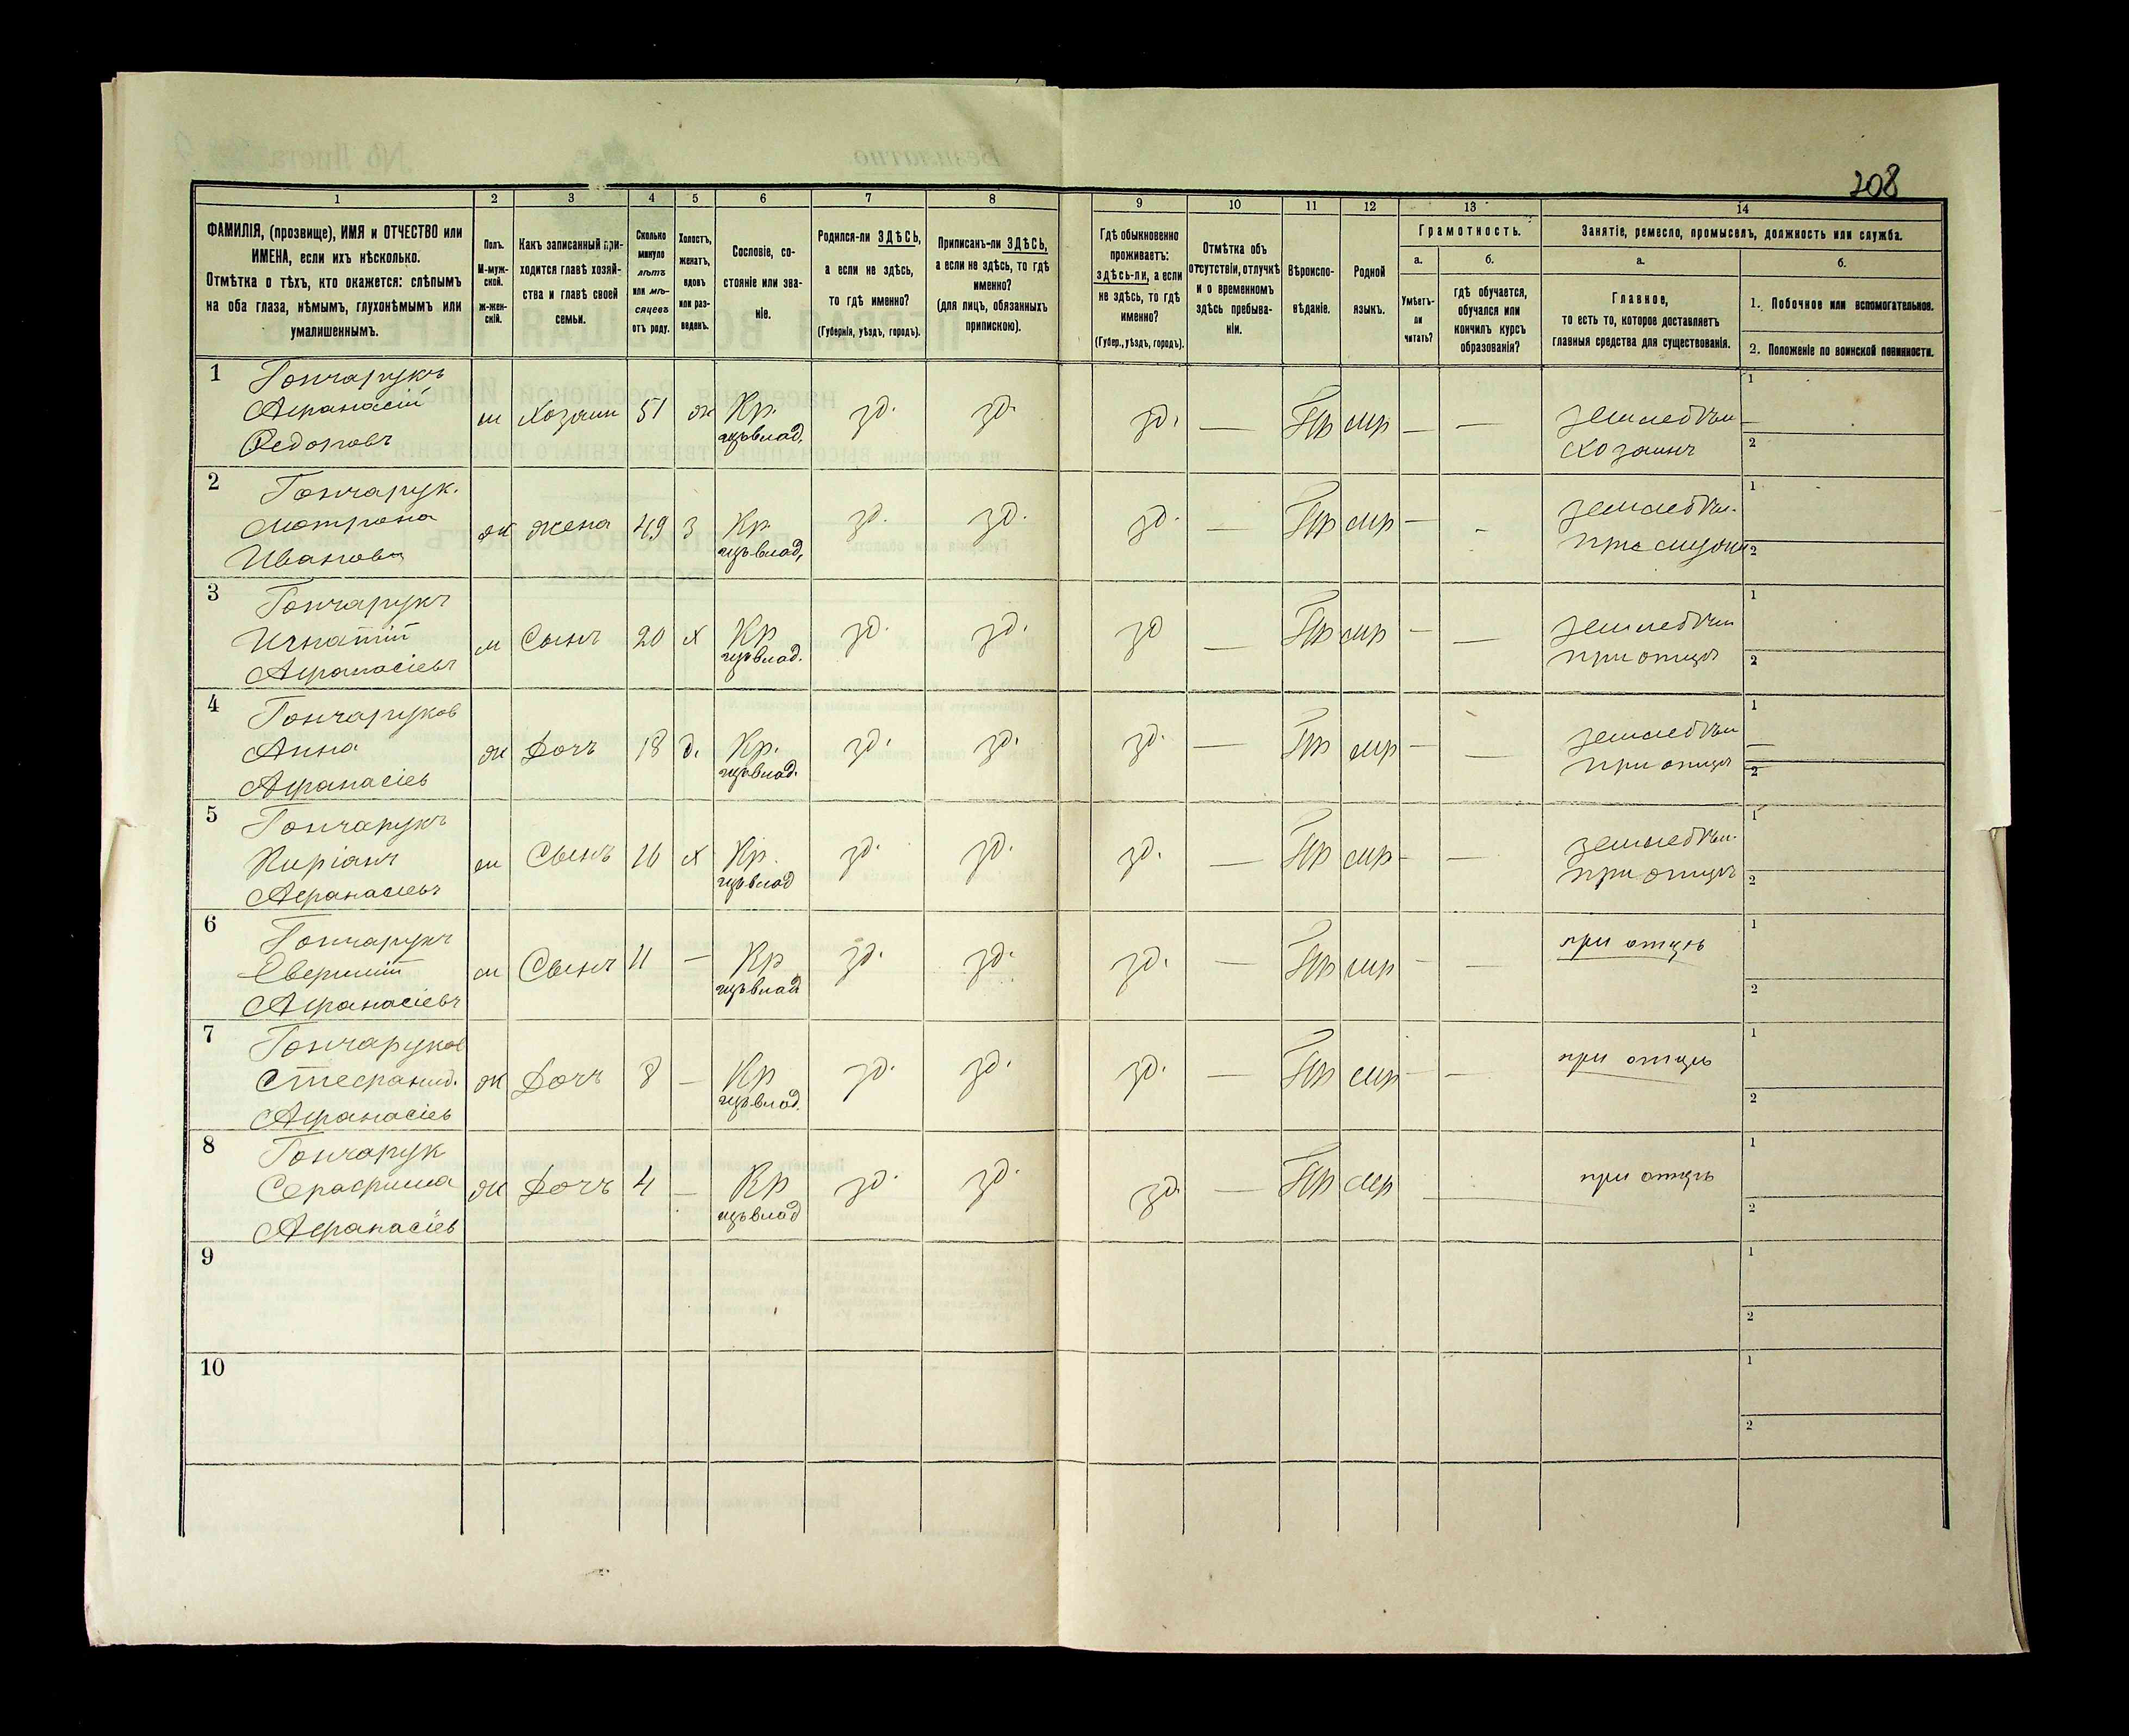 208
1 2 3 4 5 6 7 8 9 10 11 12 13 14
ФАМИЛІЯ, (прозвище), ИМЯ и ОТЧЕСТВО или
ИМЕНА, если ихъ нѣсколько.
Отмѣтка о тѣхъ, кто окажется: слѣпымъ
на оба глаза, нѣмымъ, глухонѣмымъ или
умалишеннымъ.
Полъ.
М-муж-
ской.
ж-жен-
скій.
Какъ записанный при-
ходится главѣ хозяй-
ства и главѣ своей
семьи.
Сколько
минуло
лѣтъ
или мѣ-
сяцевъ
отъ роду.
Холостъ,
женатъ,
вдовъ
или раз-
веденъ.
Сословіе, со-
стояніе или зва-
ніе.
Родился-ли ЗДѢСЬ,
а если не здѣсь,
то гдѣ именно?
(Губернія, уѣздъ, городъ).
Приписанъ-ли ЗДѢСЬ,
а если не здѣсь, то гдѣ
именно?
(для лицъ, обязанныхъ
припискою).
Гдѣ обыкновенно
проживаетъ:
здѣсь-ли, а если
не здѣсь, то гдѣ
именно?
(Губер., уѣздъ, городъ).
Отмѣтка объ
отсутствіи, отлучкѣ
и о временномъ
здѣсь пребыва-
ніи.
Вѣроиспо-
вѣданіе.
Родной
языкъ.
Грамотность.
а.
Умѣетъ-
ли
читать?
б.
гдѣ обучается,
обучался или
кончилъ курсъ
образованія?
Занятіе, ремесло, промыселъ, должность или служба.
а.
Главное,
то есть то, которое доставляетъ
главныя средства для существованія.
б.
1. Побочное или вспомогательное.
2. Положеніе по воинской повинности.
1 Гончарукъ
Афанасій
Федоровъ
м Хозяин 51 ж Кр. зд. зд. зд. — Пр мр — —
земледѣли
хозаинъ
1
2
2 Гончарук.
Мотрона
Иванова
ж жена 49 з Кр. зд. зд. зд. — Пр мр — -
земледѣли.
1
2
3 Гончарукъ
Игнатій
Афанасіевъ
м Сынъ 20 х Кр зд. зд. зд — Пр мр — —
земледѣли
при отцѣ
1
2
4 Гончаруков
Анна
Афанасіев
ж Дочь 18 д. Кр. зд. зд. зд. — Пр мр — —
земледѣли
при отцѣ
1
2
5 Гончарукъ
Киріанъ
Афанасіевъ
м Сынъ 16 х Кр. зд. зд. зд. — Пр мр — —
земледѣли.
при отцѣ
1
2
6 Гончарукъ
Афанасіевъ
м Сынъ 11 — Кр зд. зд. зд. — Пр мр — —
при отцѣ
1
2
7 Гончаруков
Стефанид.
Афанасіев
ж Дочь 8 — Кр зд. зд. зд. — Пр мр — —
при отцѣ
1
2
8 Гончарук
Серафима
Афанасіев
ж Дочь 4 — Кр зд. зд. зд. — Пр мр
при отцѣ
1
2
9
1
2
10
1
2